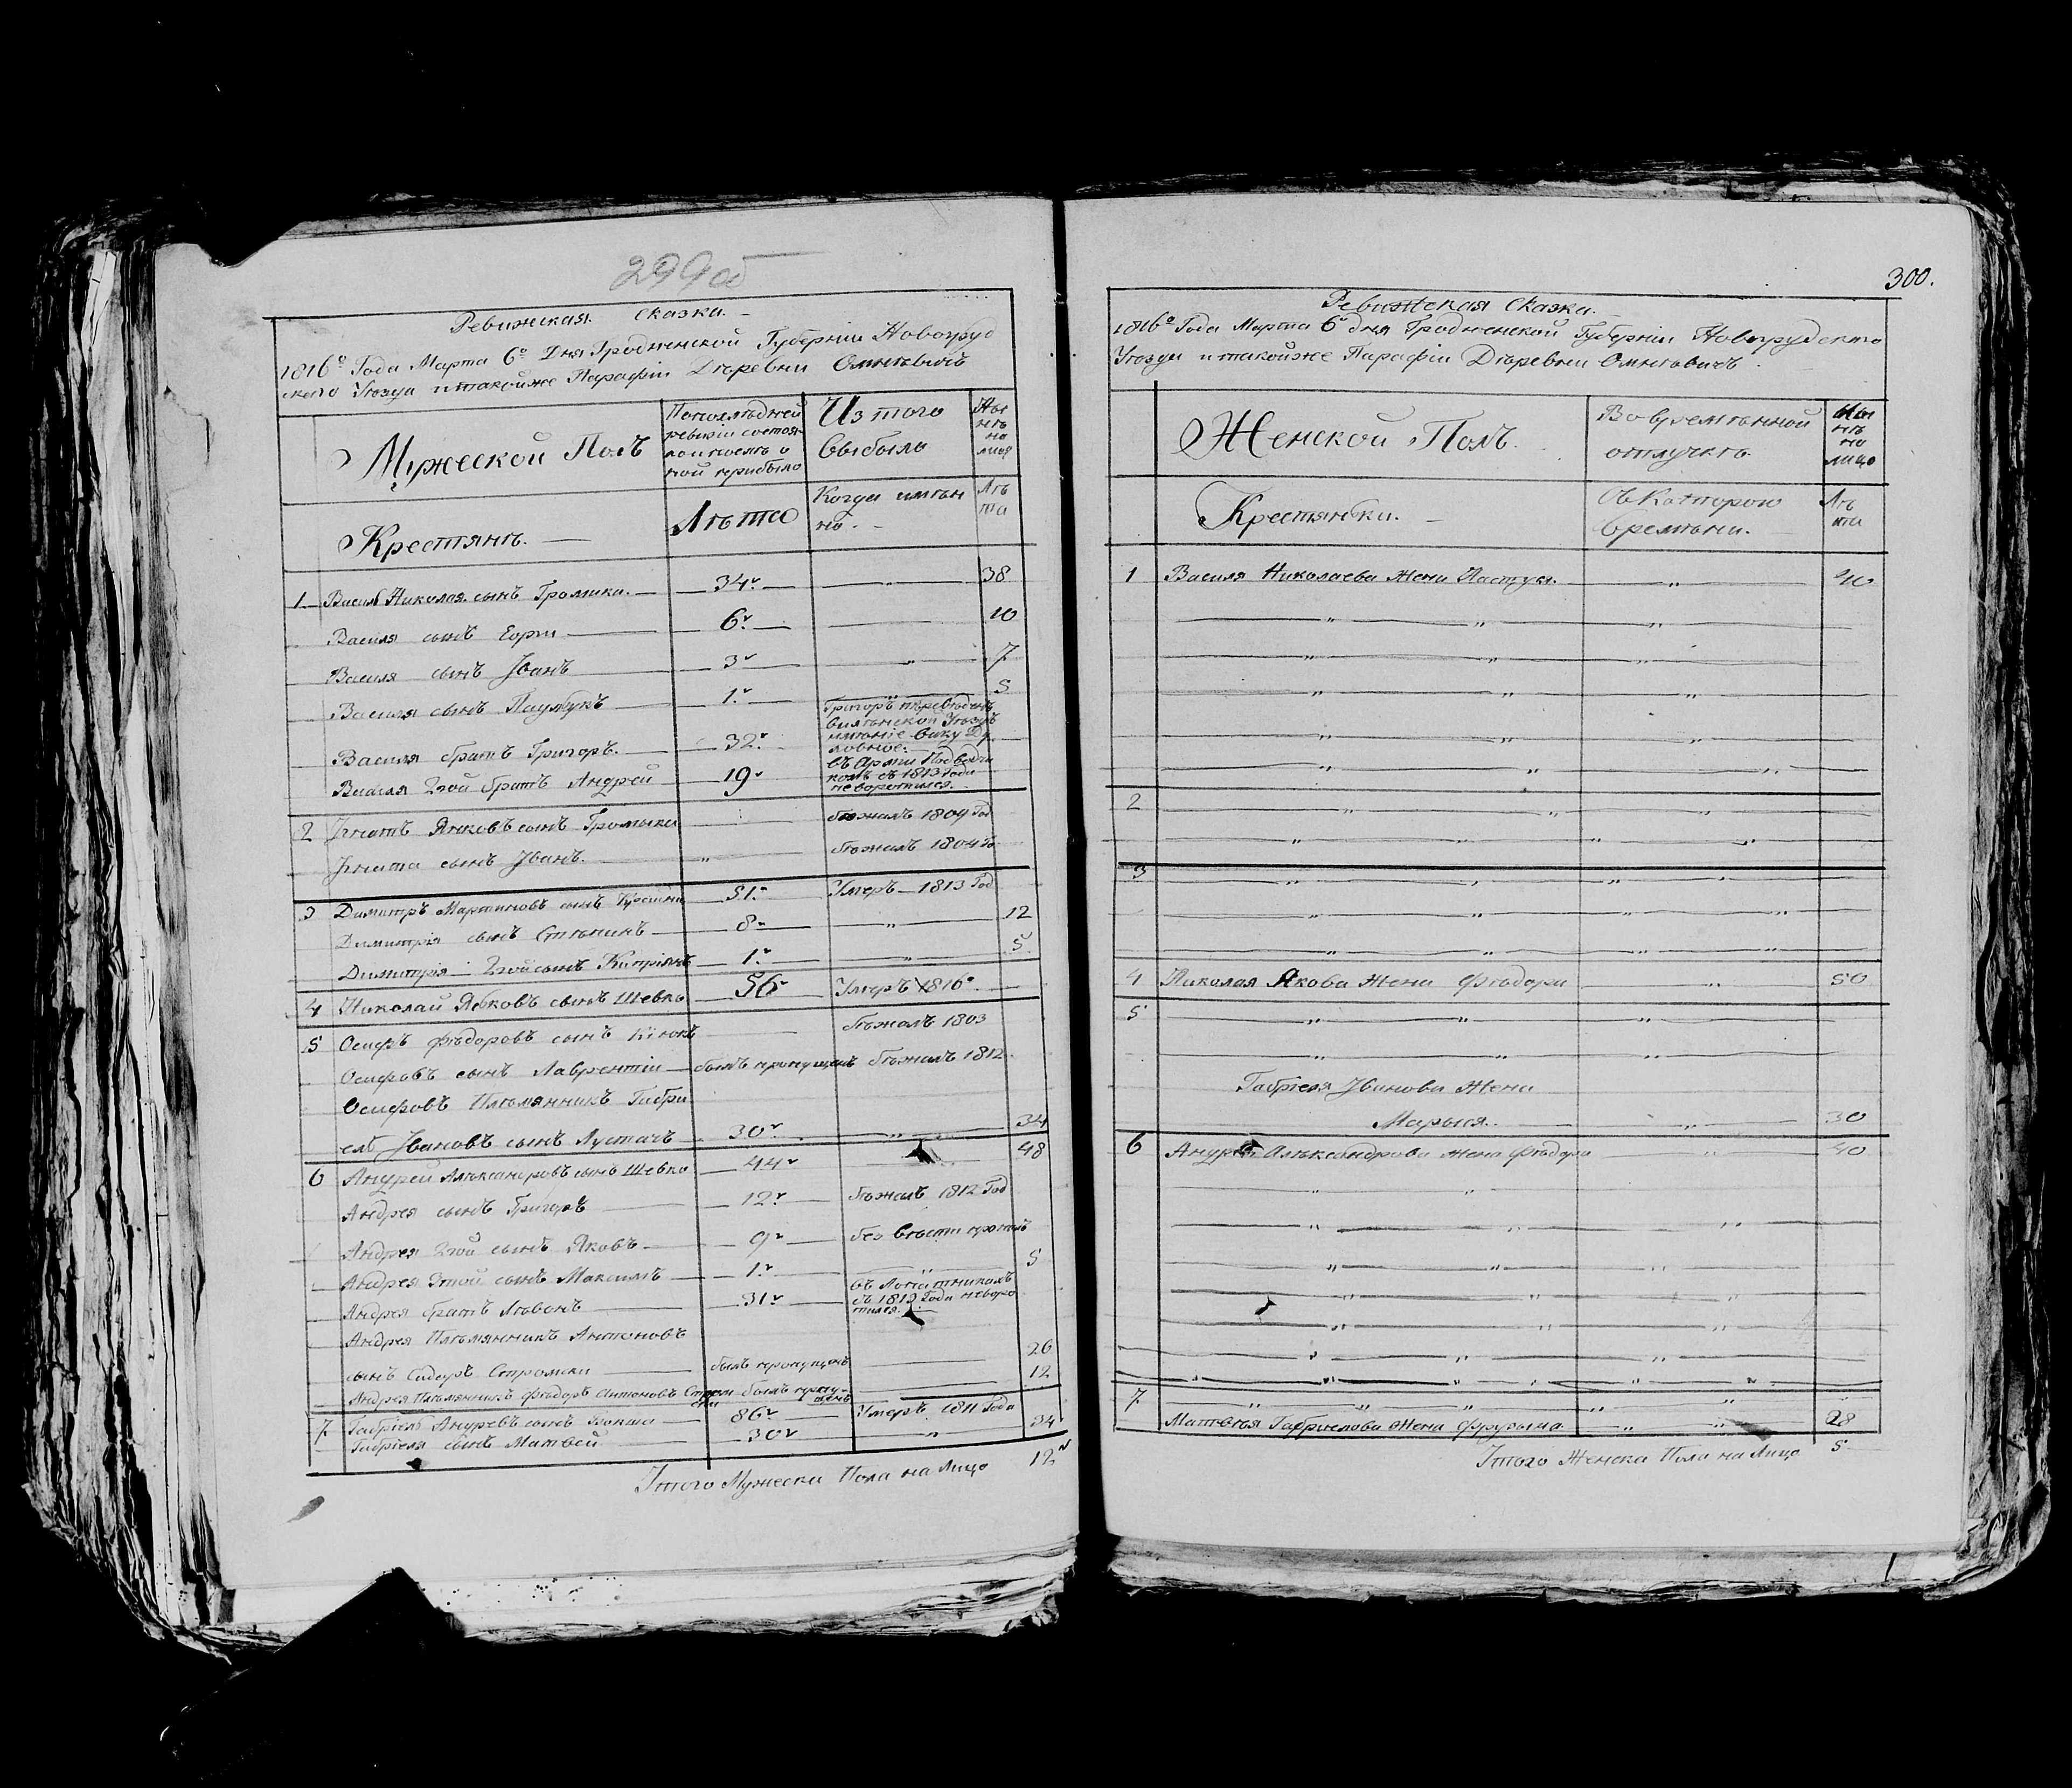 299об
Ревижская Сказка.
1816º Года Марта 6º Дня Гродненской Губерніи Новогруд
ского Уѣзда и такойже Парафіи Дѣревни Омнѣвичъ
Мужеской Полъ
Попослѣдней
ревизіи состоя-
ной прибыло
Из того
выбыло
Ны
нѣ
на
лицо
Крестянѣ.
Лѣта
Когда имян
но.
Лѣ
та
1 Василь Николая сынъ Громыка. 34. 38
Василя сынъ 6. 10
Василя сынъ Јванъ 3 7
Василя сынъ 1. 5
Василя братъ Григоръ. 32. Григоръ
Василя 2гой братъ Андрей 19
съ 1813 Года
неворотился.
2 Јгнатъ Яковъ сынъ Громыка бѣжалъ 1809 Год
Јгната сынъ Јванъ. бѣжалъ 1804
3 Димитръ Мартиновъ сынъ 51. Умеръ 1813 Год
Димитрія сынъ 8 12
Димитрія 2гой сынъ Кипріянъ 1. 5
4 Николай Яковъ сынъ Шевко 56 Умеръ 1816º
5 Осифъ Фѣдоровъ сынъ бѣжалъ 1803
Осифовъ сынъ Лаврентіи былъ пропущенъ бѣжалъ 1812
Осифовъ Плѣмянникъ Габри
елъ Јвановъ сынъ 30 34
6 Андрей Алѣксандровъ сынъ Шевко 44 48
Андрея сынъ Григоръ 12. бѣжалъ 1812 Год
Андрея 2гой сынъ Яковъ 9 без вѣсти пропалъ
Андрея 3той сынъ Максимъ 1. 5
Андрея братъ Лѣвонъ 31. въ
съ 1812 Года неворо
тился.
Андрея Плѣмянникъ Антоновъ
сынъ Сидоръ былъ пропущенъ 26
Андрея Плѣмянникъ Фѣдоръ Антоновъ былъ пропу-
щенъ 12
7 Габріель Андреевъ сынъ 86 Умеръ 1811 Года
Габріеля сынъ Матвей 30 34
Јтого Мужеска Пола на Лицо 12
300.
Ревижская Сказка.
1816º Года Марта 6º дня Гродненской Губерніи Новогрудского
Уѣзда и такойже Парафіи Дѣревни Омнѣвичъ
Женской Полъ.
Во врѣмѣнной
отлучкѣ.
Ны
нѣ
на
лицо
Крестянки.
Съ Которого
врѣмѣни.
Лѣ
та
1 Василя Николаева Жена Настуся. 40
2
3
4 Николая Якова Жена Фѣдора 50
5
Габріеля Јванова Жена
Марыся. 30
6 Андрея Алѣксандрова жена Фѣдора 40
7
Матвѣя Габріелова Жена 28
Јтого Женска Пола на Лицо 5